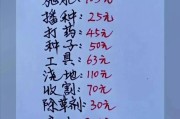 播种: 25元
打药: 45元
种子: 50元
工具: 63元
浇地: 110元
收割: 70元
除草剂: 30元